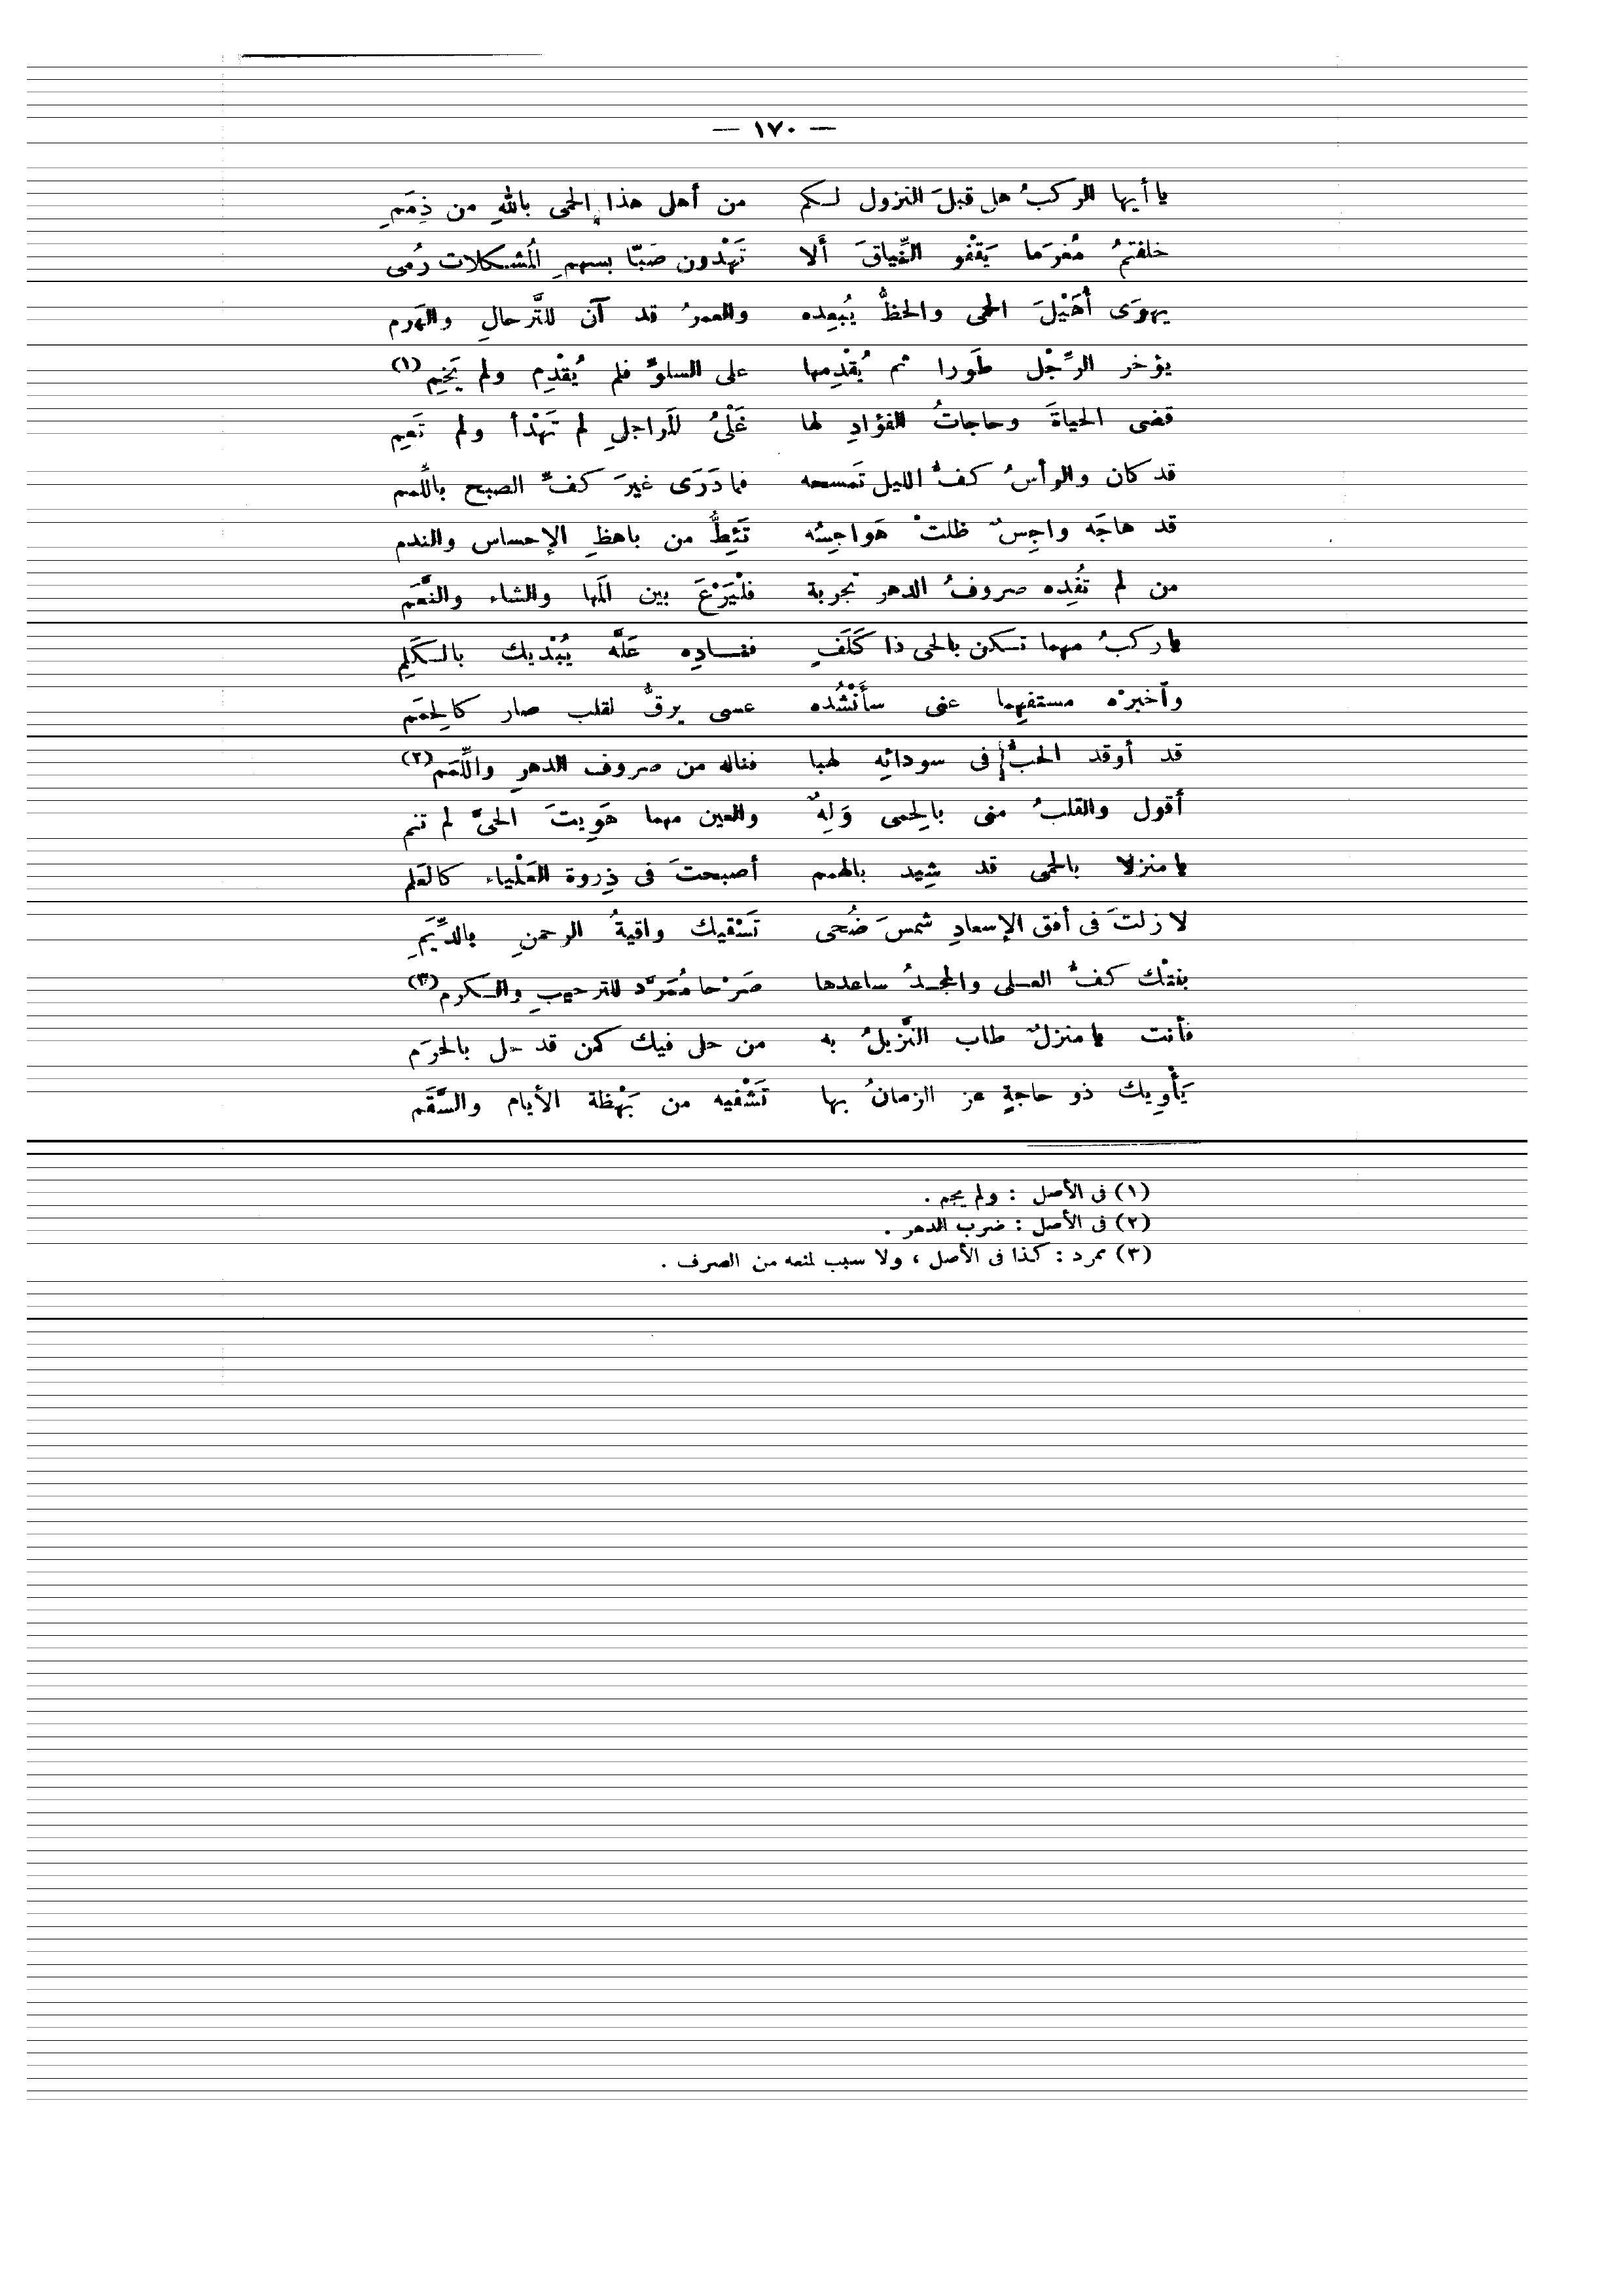 — ١٧٠ —
يا أيها الركبُ هل قبلَ النزول لكم من أهل هذا الحمى باللهِ من ذِمَمِ
خلفتمُ مُغرَما يَقْفو النِّياقَ أَلا تَهْدون صَبًّا بسهمِ المُشكلات رُمى
يهوَى أُهَيْلَ الحمى والحظُّ يُبعِده والعمرُ قد آن للتَّرحالِ والهَرم
يؤخر الرِّجْل طَورا ثم يُقْدِمها على السلوِّ فلم يُقْدِم ولم يَخِم (١)
قضى الحياةَ وحاجاتُ الفؤادِ لها غَلْىُ المَراجلِ لم تَهْدأ ولم تَعِم
قد كان والرأسُ كفُّ الليل تَمسحه فما دَرَى غيرَ كفِّ الصبح باللِّمم
قد هاجَه واجِسٌ ظلتْ هَواجِسُه تَئِطُّ من باهظِ الإحساس والندم
من لم تُفِده صروفُ الدهر تجربة فلْيَرْعَ بين المَها والشاء والنَّعَم
يا ركبُ مهما تكن بالحى ذا كَلَفٍ فنادِه عَلَّه يُبْديك بالكَلِمِ
وأخبرْه مستفهِما عنى سأَنْشُده عسى يرقُّ لقلب صار كالحِمَم
قد أوقد الحبُّ فى سودائِه لهبا فناله من صروف الدهرِ واللَّمَم (٢)
أقول والقلبُ منى بالحِمى وَلِهٌ والعين مهما هَوِيتَ الحىَّ لم تنم
يا منزلا بالحمى قد شِيد بالهمم أصبحتَ فى ذِروة العَلْياء كالعَلم
لا زلتَ فى أفق الإسعادِ شمسَ ضُحى تَسْقيك واقيةُ الرحمنِ بالدِّيَمِ
بنتْك كفُّ العلى والمجدُ ساعدها صَرْحا مُمَرَّد للترحيبِ والكرم (٣)
فأنت يا منزلٌ طاب النَّزيلُ به من حل فيك كمن قد حل بالحرَم
يَأْوِيك ذو حاجةٍ عز الزمانُ بها تَشْفيه من بَهْظة الأيام والسَّقَم
(١) فى الأصل : ولم يجم .
(٢) فى الأصل : ضرب الدهر .
(٣) ممرد : كذا فى الأصل ، ولا سبب لمنعه من الصرف .